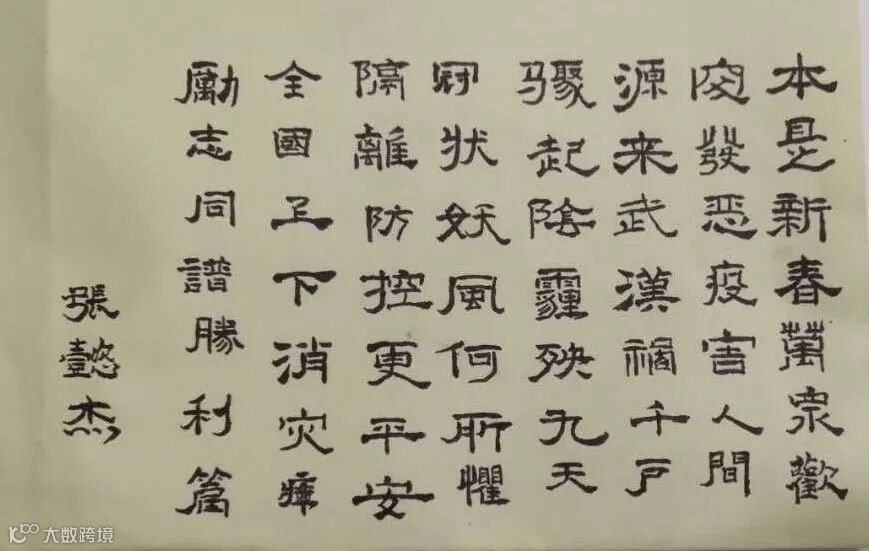 本是新春萬眾歡
突發恶疫害人間
源来武漢禍千戶
骤起陰霾殃九天
冠状妖風何所懼
隔離防控更平安
全國上下消灾瘴
勵志同譜勝利篇
張懿杰
大数跨境